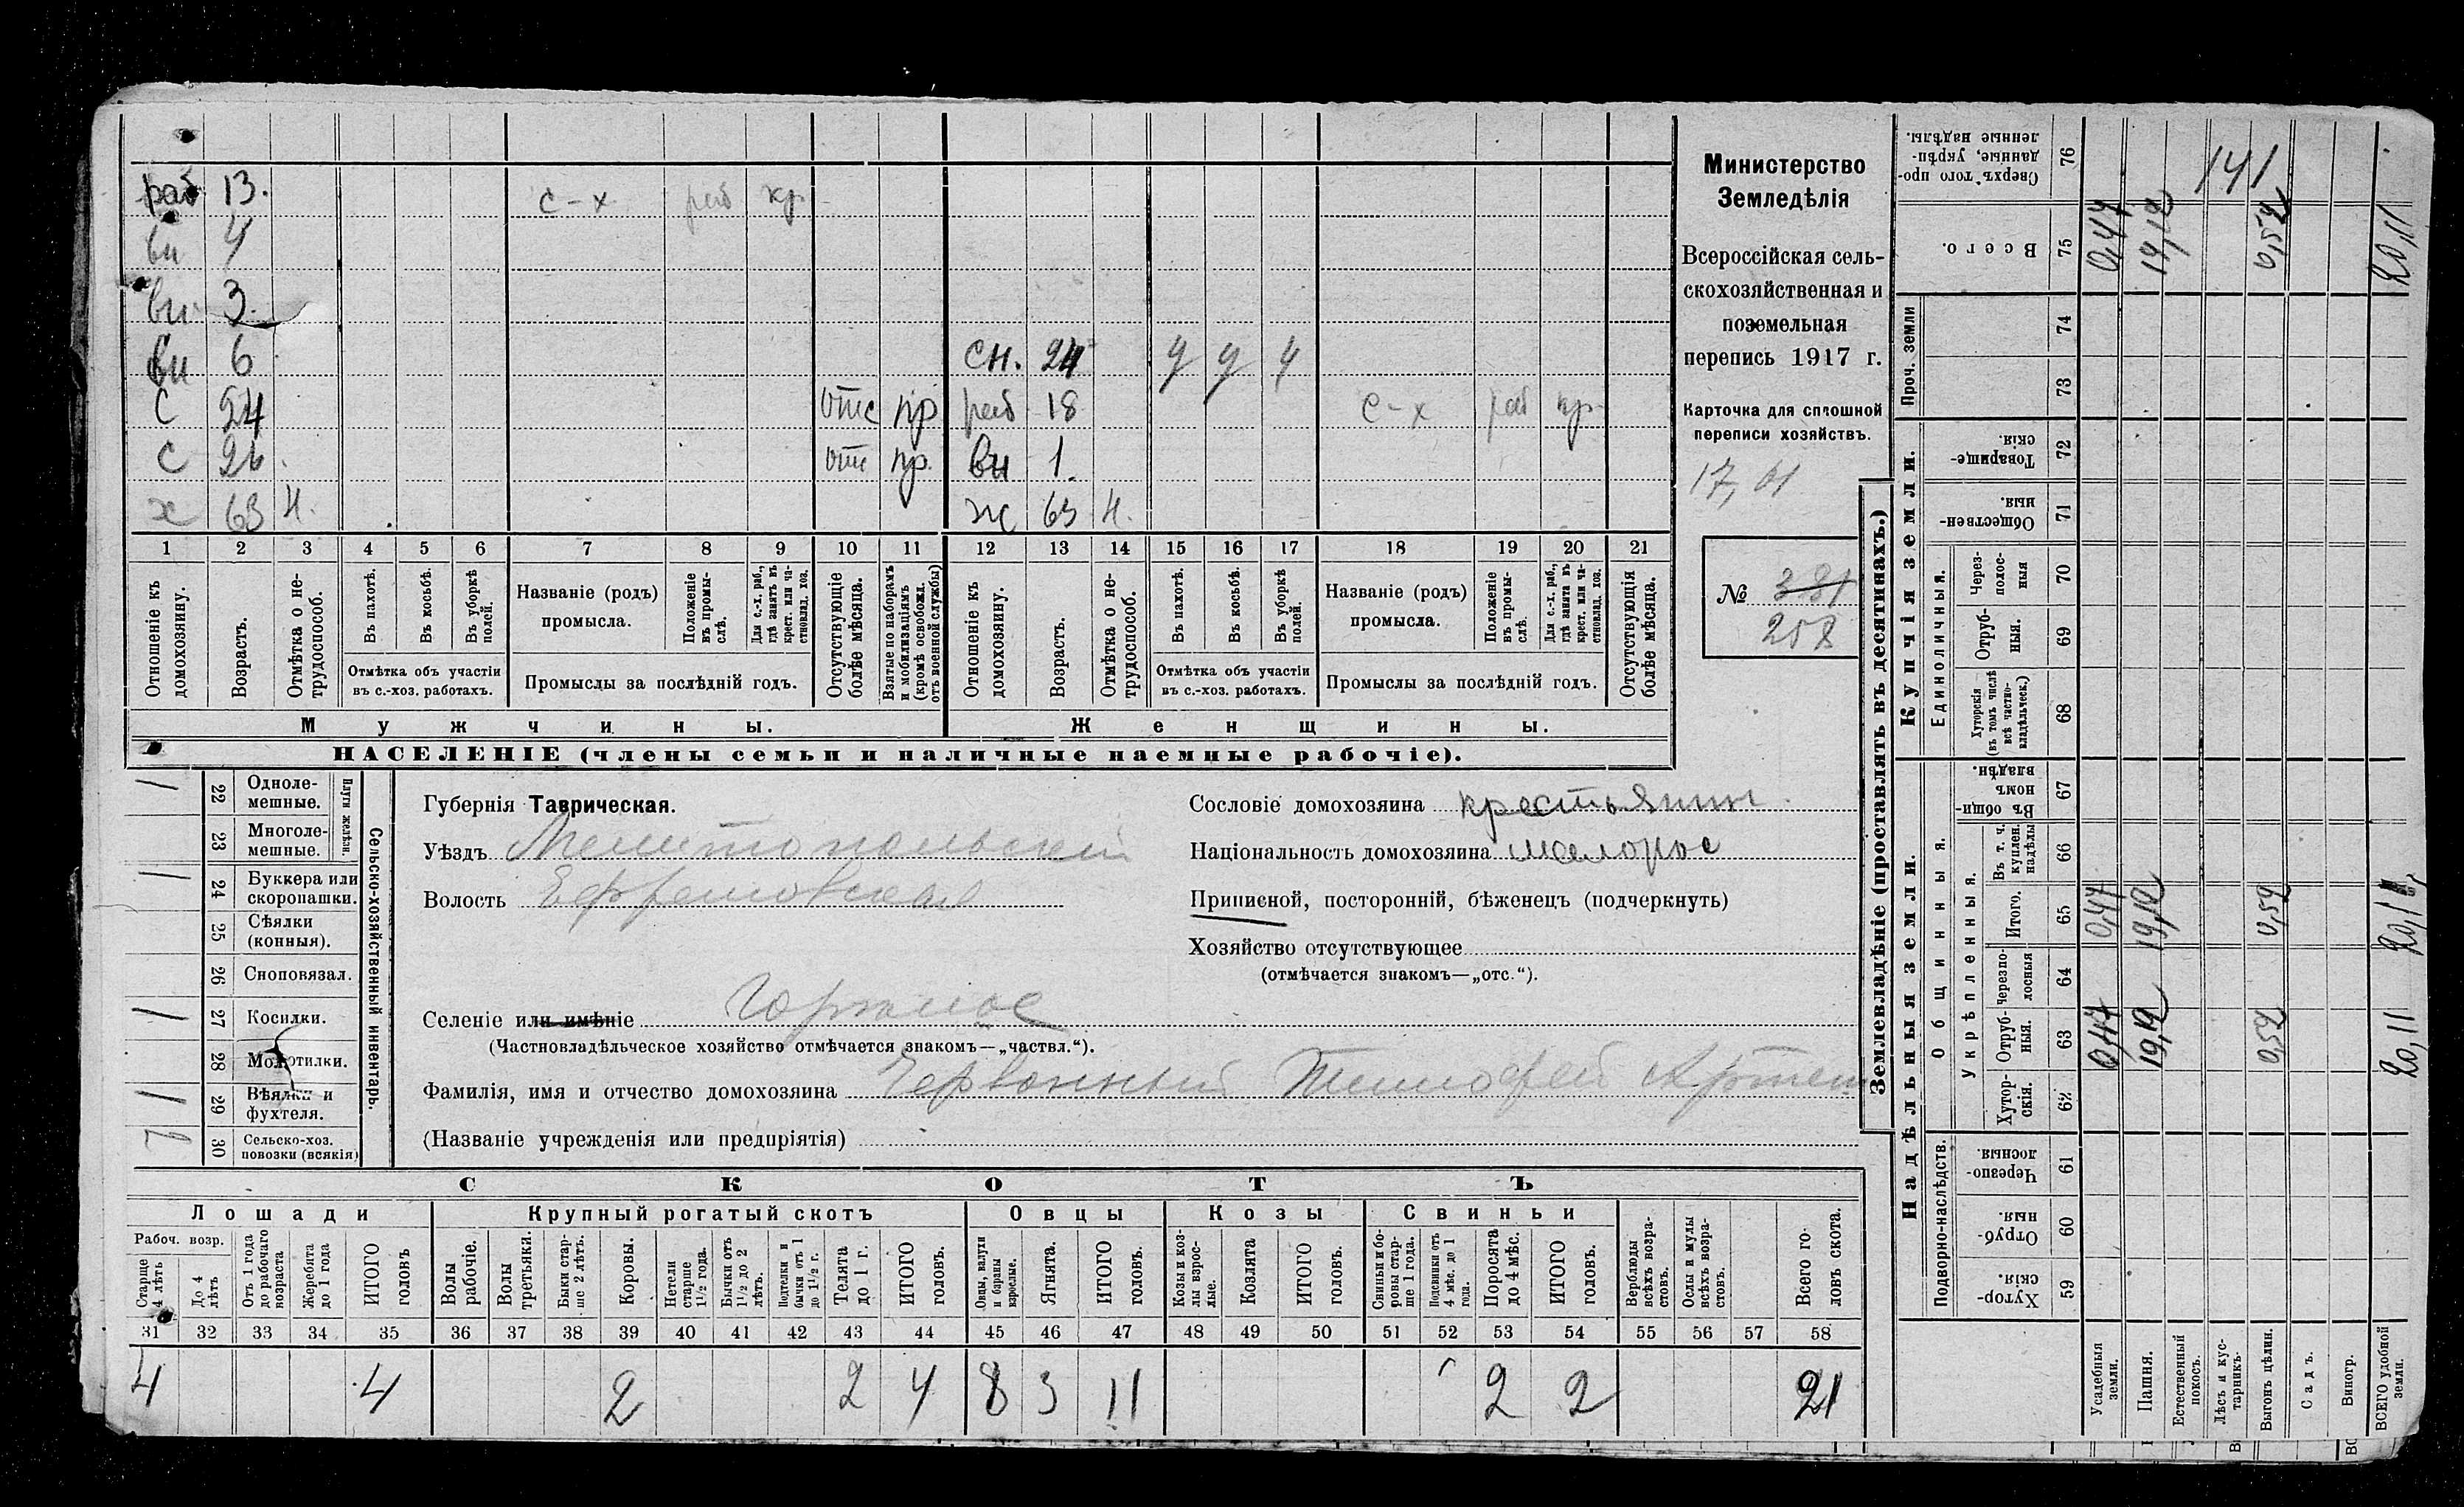 раб 13. с-х раб кр
вн 4
вн 3.
вн 6 сн. 24 у у у
С 24 отс пр раб 18 с-х раб кр
С 26. отс пр. вн 1.
х 63 н. ж 63 н.
1 2 3 4 5 6 7 8 9 10 11 12 13 14 15 16 17 18 19 20 21
Отношеніе къ домохозяину.
Возрастъ.
Отмѣтка о не-трудоспособ.
Въ пахотѣ.
Въ косьбѣ.
Въ уборкѣ полей.
Отмѣтка объ участіи
въ с.-хоз. работахъ.
Названіе (родъ)
промысла.
Положеніе въ промы-слѣ.
Для с.-х. раб., гдѣ занятъ въ крест. или ча-стновлад. хоз.
Промыслы за послѣдній годъ.
Отсутствующіе болѣе мѣсяца.
Взятые по наборамъ и мобилизаціямъ (кромѣ освобожд. отъ военной службы)
Отношеніе къ домохозяину.
Возрастъ.
Отмѣтка о не-трудоспособ.
Въ пахотѣ.
Въ косьбѣ.
Въ уборкѣ полей.
Отмѣтка объ участіи
въ с.-хоз. работахъ.
Названіе (родъ)
промысла.
Положеніе въ промы-слѣ.
Для с.-х. раб., гдѣ занята въ крест. или ча-стновлад. хоз.
Промыслы за послѣдній годъ.
Отсутствующія болѣе мѣсяца.
Мужчины.
Женщины.
НАСЕЛЕНІЕ (члены семьи и наличные наемные рабочіе).
Министерство
Земледѣлія
Всероссійская сель-
скохозяйственная и
поземельная
перепись 1917 г.
Карточка для сплошной
переписи хозяйствъ.
17,01
№ 381
258
1 22 Одноле-мешные.
23 Многоле-мешные.
Плуги желѣзн.
1 24 Буккера или скоропашки.
25 Сѣялки (конныя).
26 Сноповязал.
1 27 Косилки.
28 Молотилки.
1 29 Вѣялки и фухтеля.
30 Сельско-хоз. повозки (всякія)
Сельско-хозяйственный инвентарь.
Губернія Таврическая.
Уѣздъ Мелитопольскій
Волость Ефремовская
Селеніе или имѣніе
(Частновладѣльческое хозяйство отмѣчается знакомъ—„частвл.“).
Фамилія, имя и отчество домохозяина Червонный Тимофей
(Названіе учрежденія или предпріятія)
Сословіе домохозяина крестьянин.
Національность домохозяина малорос
Приписной, посторонній, бѣженецъ (подчеркнуть)
Хозяйство отсутствующее
(отмѣчается знакомъ—„отс.“).
СКОТЪ
Лошади Крупный рогатый скотъ Овцы Козы Свиньи
Рабоч. возр.
Старше 4 лѣтъ
До 4 лѣтъ
Отъ 1 года до рабочаго возраста
Жеребята до 1 года
ИТОГО головъ
Волы рабочіе.
Волы третьяки.
Быки стар-ше 2 лѣтъ.
Коровы.
Нетели старше 1½ года.
Бычки отъ 1½ до 2 лѣтъ.
Подтелки и бычки отъ 1 до 1½ г.
Телята до 1 г.
ИТОГО головъ.
Овцы, валухи и бараны взрослые.
Ягнята.
ИТОГО головъ.
Козы и коз-лы взрос-лые.
Козлята
ИТОГО головъ.
Свиньи и бо-ровы стар-ше 1 года.
Подсвинки отъ 4 мѣс. до 1 года.
Поросята до 4 мѣс.
ИТОГО головъ.
Верблюды всѣхъ возра-стовъ.
Ослы и мулы всѣхъ возра-стовъ.
Всего го-ловъ скота.
31 32 33 34 35 36 37 38 39 40 41 42 43 44 45 46 47 48 49 50 51 52 53 54 55 56 57 58
4 4 2 2 4 8 3 11 2 2 21
Землевладѣніе (проставлять въ десятинахъ.)
Надѣльныя земли.
Купчія земли.
Проч. земли
Подворно-наслѣдств.
Общинныя.
Укрѣпленныя.
Единоличныя.
Хутор-скія. 59
Отруб-ныя. 60
Черезпо-лосныя. 61
Хутор-скія. 62
Отруб-ныя. 63
Черезпо-лосныя 64
Итого. 65
Въ т. ч. куплен. надѣлы 66
Въ общи-номъ владѣн. 67
Хуторскія (въ томъ числѣ всѣ частно-владѣльческ.) 68
Отруб-ныя. 69
Через-полос-ныя 70
Обществен-ныя. 71
Товарище-скія. 72
73
74
Всего. 75
Сверхъ того про-данные, укрѣп-ленные надѣлы. 76
Усадебныя земли. 0,47 0,47 0,47
Пашня. 19,12 19,12 19,12
Естественный покосъ.
Лѣсъ и кус-тарникъ.
Выгонъ цѣлин. 0,52 0,52 0,52
Садъ.
Виногр.
ВСЕГО удобной земли. 20,11 20,11 20,11
141